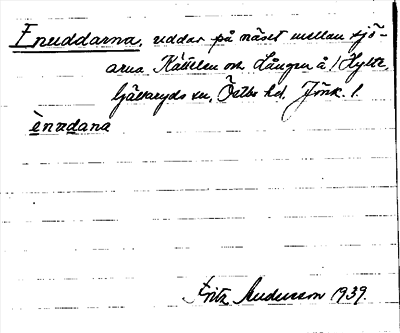 Enuddarna, uddar på näset mellan sjö-
arna Kättelen och Lången å 1 Hylte,
Gällaryds sn, Östbo hd. Jönk. l.
ènudana
Fritz Andersson 1939.